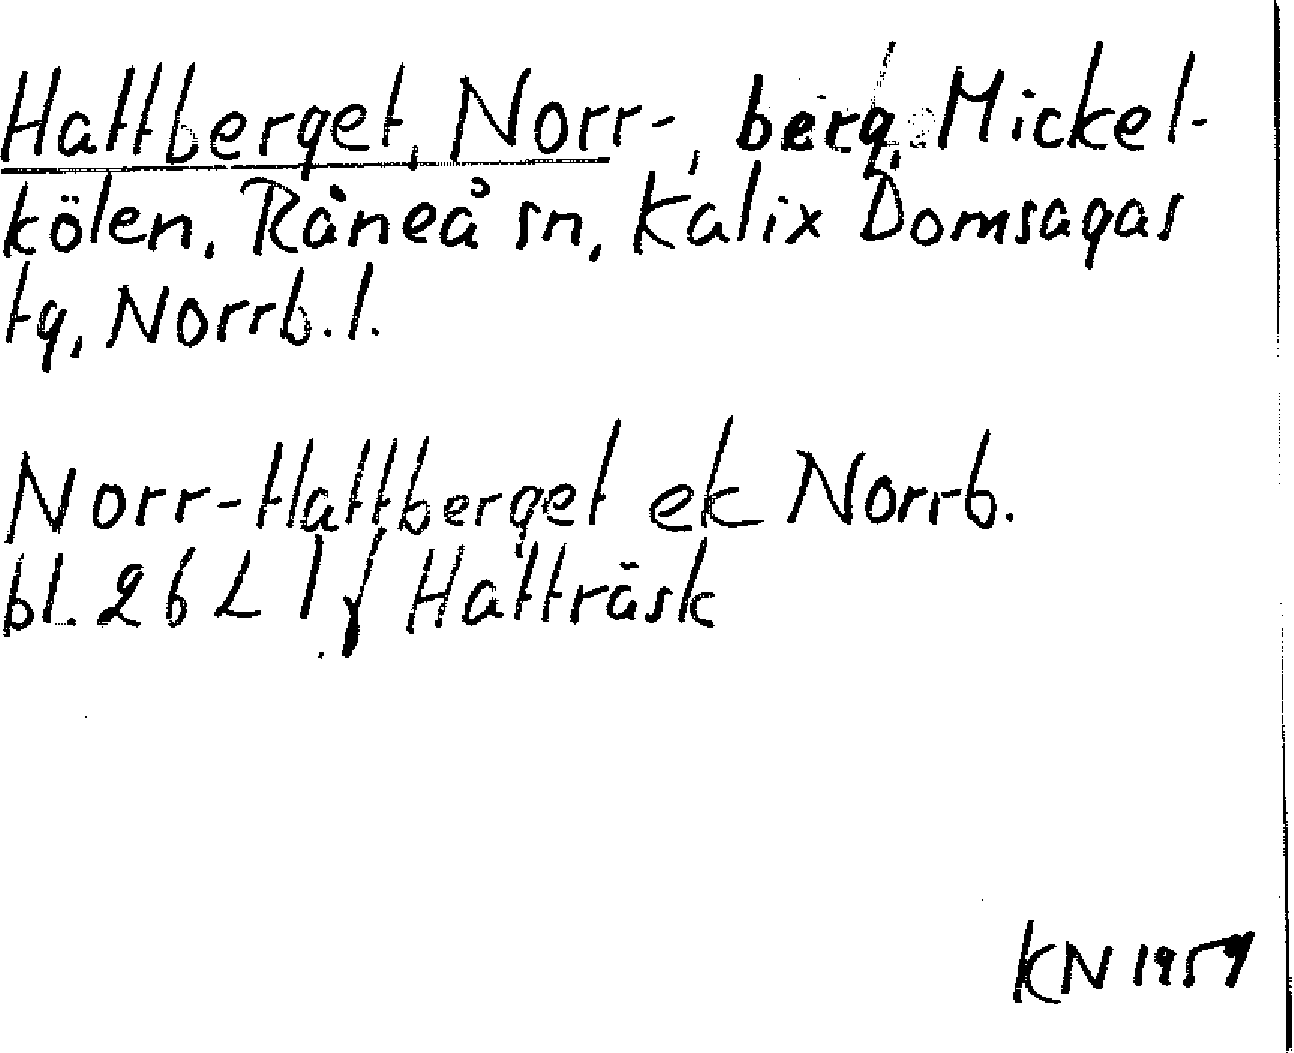 Hattberget, Norr-, berg, Mickel-
kölen, Råneå sn, Kalix Domsagas
tg, Norrb. l.
Norr-Hattberget ek Norrb.
bl. 26 L I f Hatträsk
KN 1959